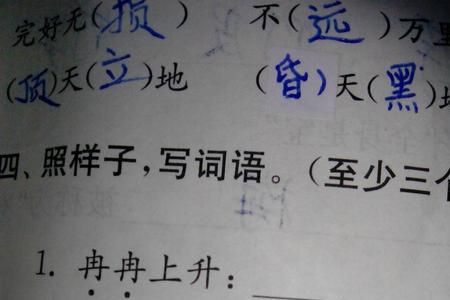 完好无(损) 不(远)万里
(顶)天(立)地 (昏)天(黑)地
四、照样子,写词语。(至少三个
1. 冉冉上升: